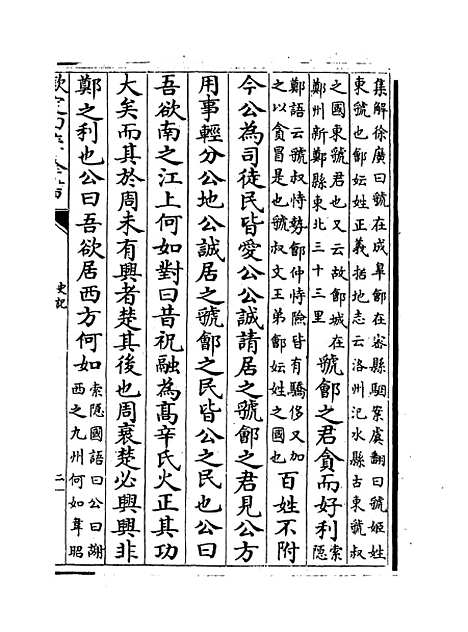 集解徐廣曰虢在成臯鄶在宻縣駰案虞翻曰虢姬姓
東虢也鄶妘姓正義括地志云洛州氾水縣古東虢叔
之國東虢君也又云故鄶城在
鄭州新鄭縣東北三十三里
虢鄶之君貪而好利
索
隱
鄭語云虢叔恃勢鄶仲恃險皆有驕侈又加
之以貪冒是也虢叔文王弟鄶妘姓之國也
百姓不附
今公為司徒民皆愛公公誠請居之虢鄶之君見公方
用事輕分公地公誠居之虢鄶之民皆公之民也公曰
吾欲南之江上何如對曰昔祝融為高辛氏火正其功
大矣而其於周未有興者楚其後也周衰楚必興興非
鄭之利也公曰吾欲居西方何如
索隱國語曰公曰謝
西之九州何如韋昭
史記
二